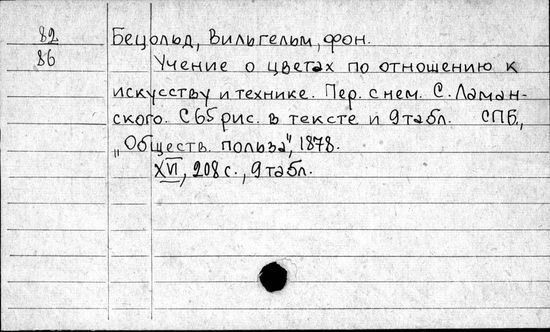 82 Бецольд, Вильгельм, фон.
86 Учение о цветах по отношению к
искусству и технике. Пер. с нем. С. Ламан-
ского. С 65 рис. в тексте и 9 табл. СПБ.,
„Обществ. польза", 1878.
XVI, 208 с., 9 табл.